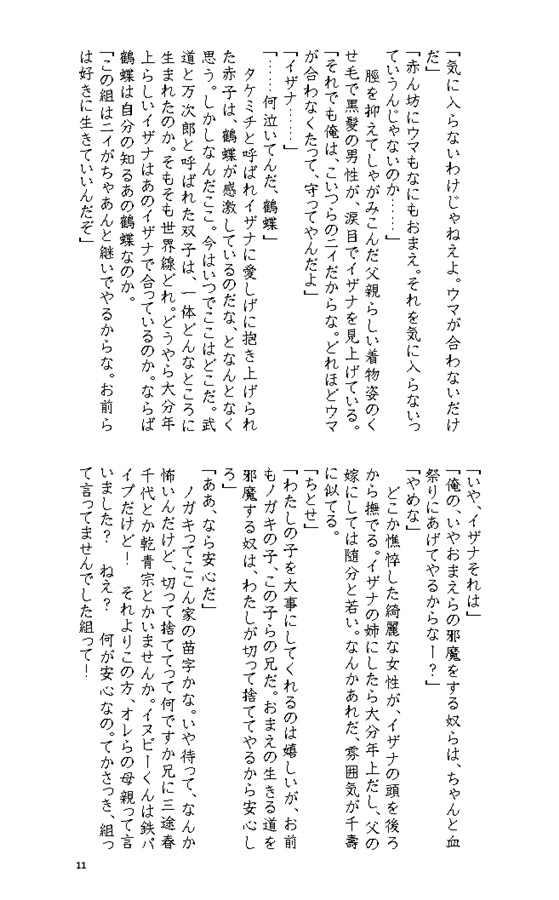 「気に入らないわけじゃねえよ。ウマが合わないだけ
だ」
「赤ん坊にウマもなにもおまえ。それを気に入らないっ
ていうんじゃないのか……」
　脛を抑えてしゃがみこんだ父親らしい着物姿のく
せ毛で黒髪の男性が、涙目でイザナを見上げている。
「それでも俺は、こいつらのニィだからな。どれほどウマ
が合わなくたって、守ってやんだよ」
「イザナ……」
「……何泣いてんだ、鶴蝶」
　タケミチと呼ばれイザナに愛しげに抱き上げられ
た赤子は、鶴蝶が感激しているのだな、となんとなく
思う。しかしなんだここ。今はいつでここはどこだ。武
道と万次郎と呼ばれた双子は、一体どんなところに
生まれたのか。そもそも世界線どれ。どうやら大分年
上らしいイザナはあのイザナで合っているのか。ならば
鶴蝶は自分の知るあの鶴蝶なのか。
「この組はニィがちゃあんと継いでやるからな。お前ら
は好きに生きていいんだぞ」
「いや、イザナそれは」
「俺の、いやおまえらの邪魔をする奴らは、ちゃんと血
祭りにあげてやるからなー？」
「やめな」
　どこか憔悴した綺麗な女性が、イザナの頭を後ろ
から撫でる。イザナの姉にしたら大分年上だし、父の
嫁にしては随分と若い。なんかあれだ、雰囲気が千壽
に似てる。
「ちとせ」
「わたしの子を大事にしてくれるのは嬉しいが、お前
もノガキの子、この子らの兄だ。おまえの生きる道を
邪魔する奴は、わたしが切って捨ててやるから安心し
ろ」
「ああ、なら安心だ」
　ノガキってここん家の苗字かな。いや待って、なんか
怖いんだけど、切って捨ててって何ですか兄に三途春
千代とか乾青宗とかいませんか。イヌピーくんは鉄パ
イプだけど！　それよりこの方、オレらの母親って言
いました？　ねえ？　何が安心なの。てかさっき、組っ
て言ってませんでした組って！
11